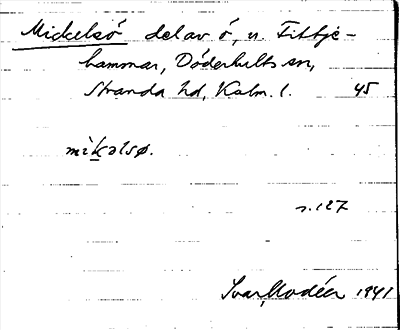 Mickelsö del av ö, n. Fittje-
hammar, Döderhults sn,
Stranda hd, Kalm. l. 45
mìkəlsø.
s. 127
Ivar Modéer 1941